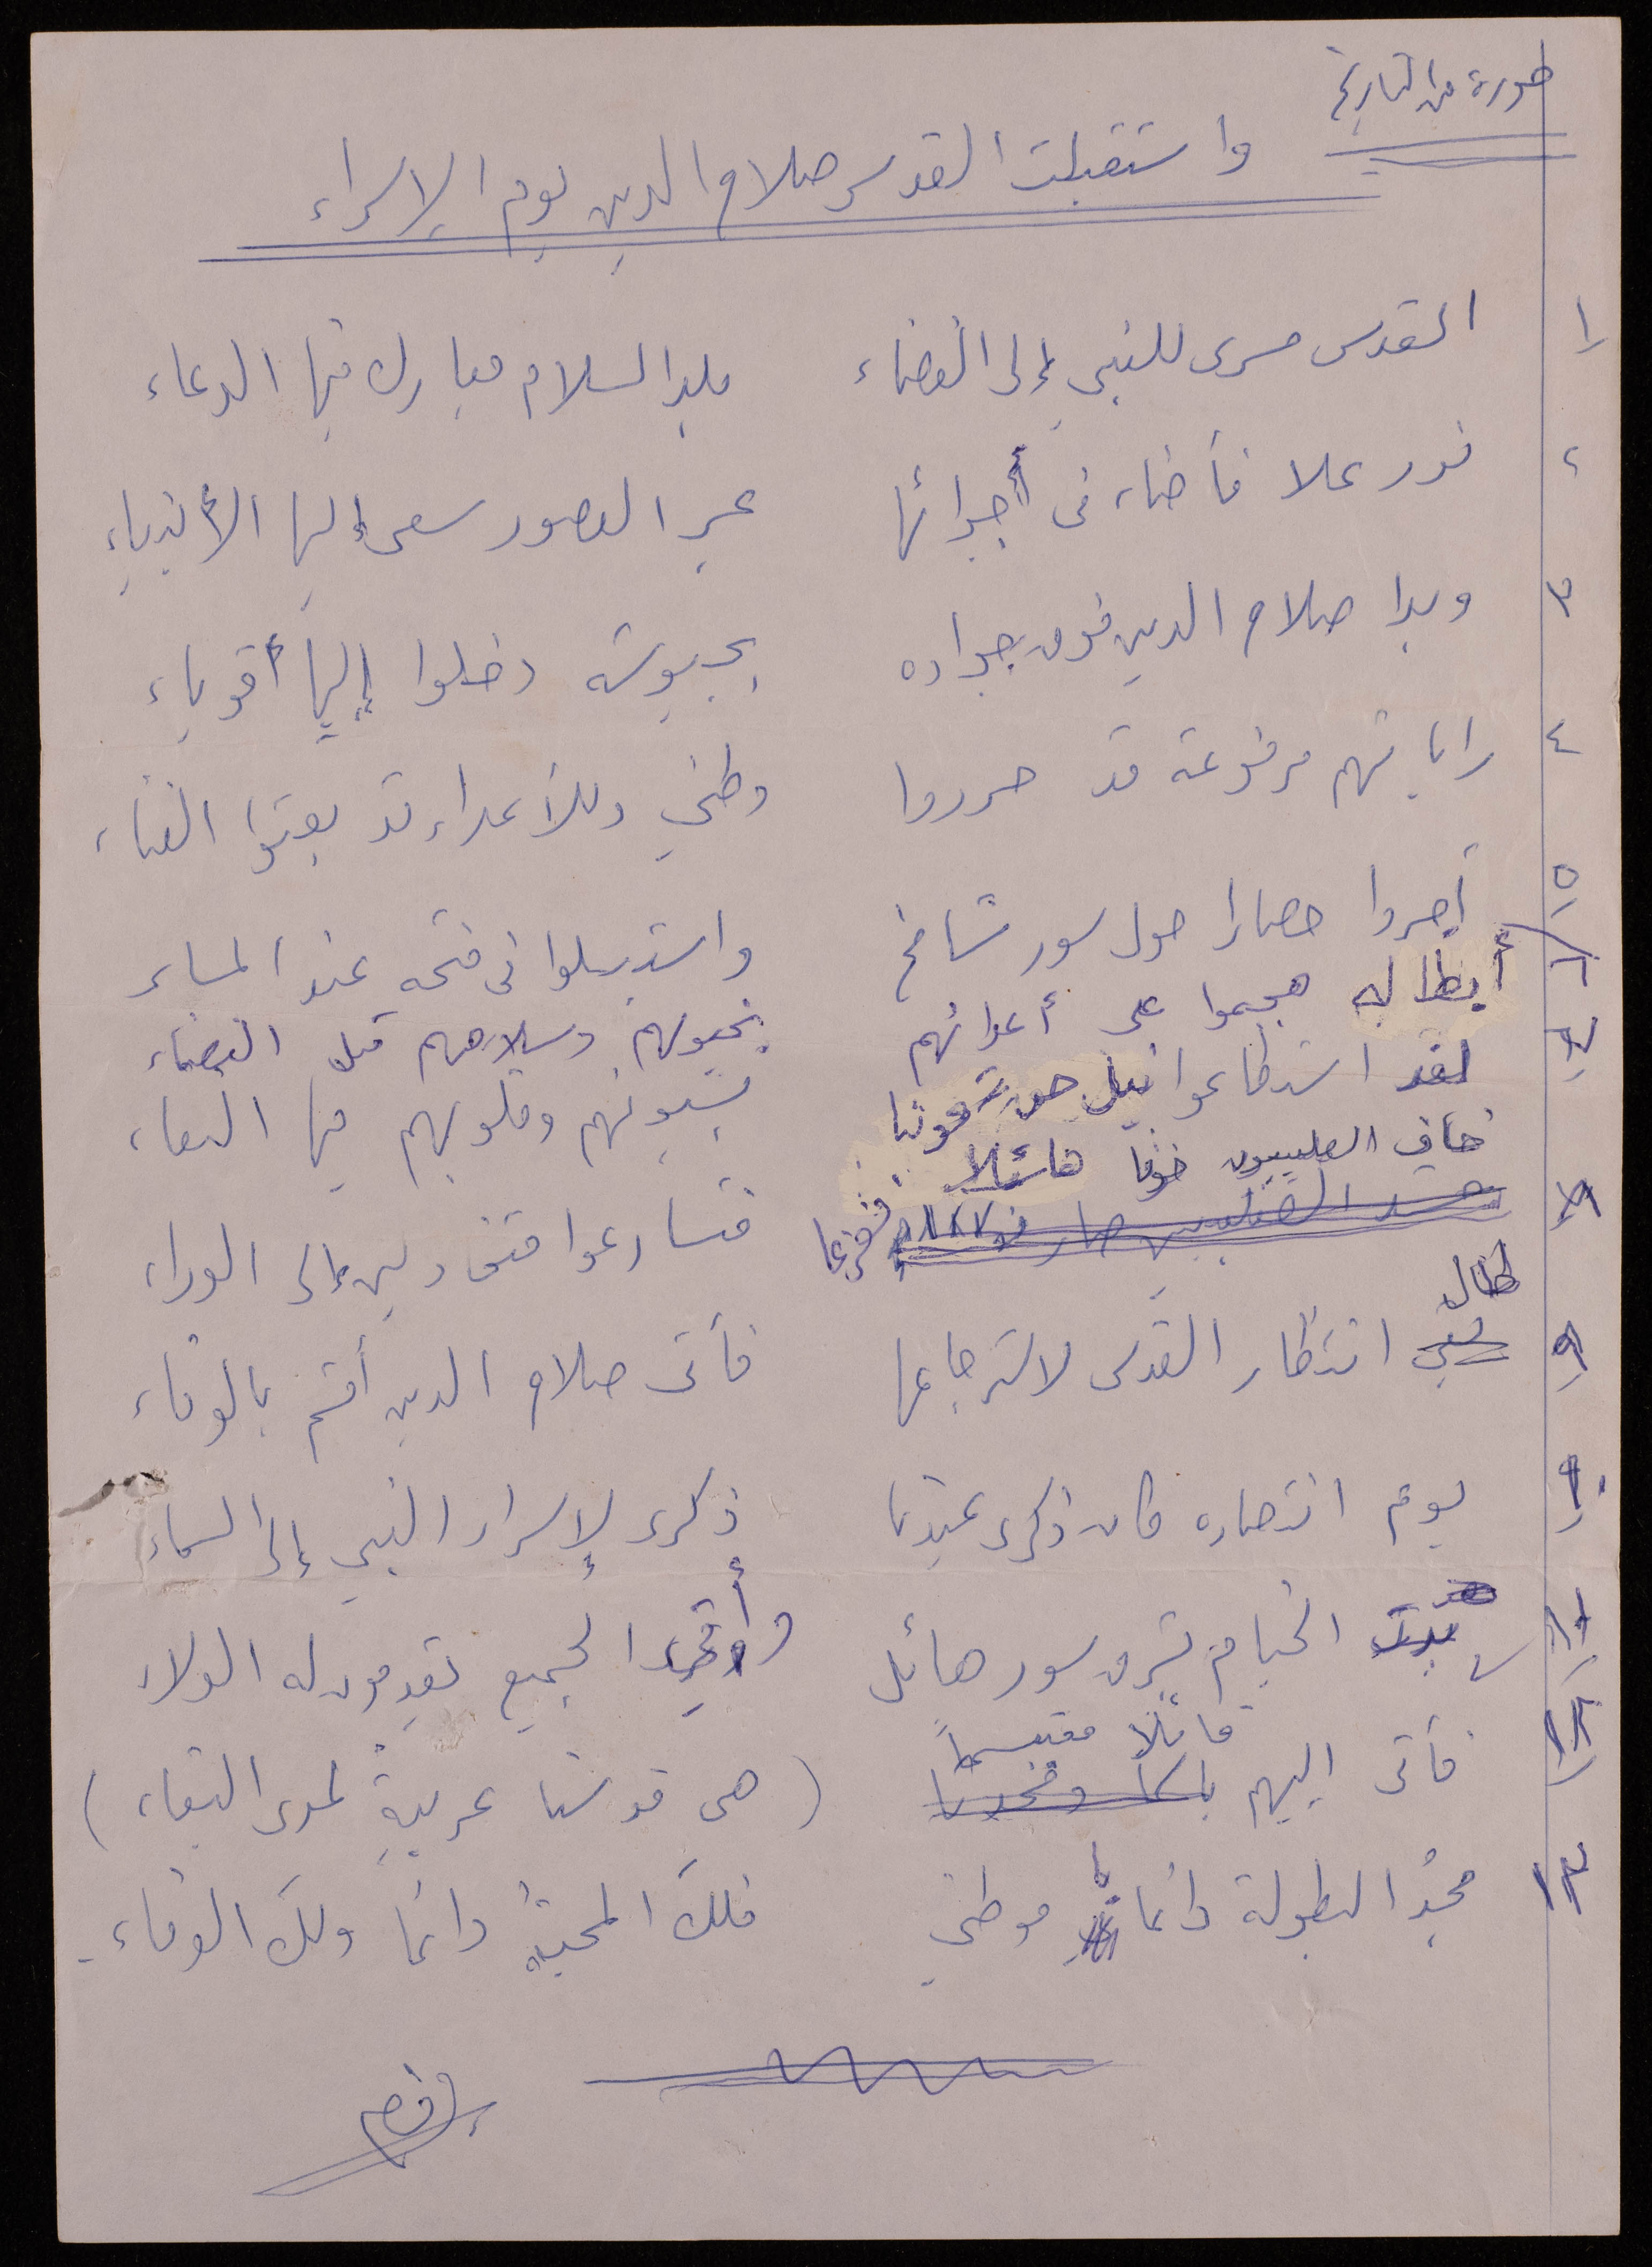 صورة من التاريخ
واستقبلت القدس صلاح الدين يوم الإسراء
١ القدس مسرى للنبي إلى الفضاء بلد السلام مبارك فيها الدعاء
٢ نور علا فأضاء فى أجوائها عبر العصور سعى إليها الأنبياء
٣ وبدا صلاح الدين فوق جواده بجيوشه دخلوا إليها أقوياء
٤ راياتهم مرفوعة قد حرروا وطني وللأعداء قد بعثوا الفناء
٥ أجروا حصارا حول سور شامخ واستبسلوا فى فتحه عند المساء
٦ أبطاله هجموا على أعدائهم بخيولهم وسلاحهم قبل القضاء
٧ لقد استطاعوا نيل حق بسيوفهم وقلوبهم فيها النقاء
خاف الصليبيون خوفا هائلا
٨ ففزعا فتسارعوا متقاولين إلى الوراء
طال
٩ انتظار القدس لاسترجاعها فأتى صلاح الدين أقسم بالوفاء
١٠ يوم انتصاره كان ذكرى عيدنا ذكرى لإسراء النبي إلى السماء
١١ الخيام بشرق سور هائل وأتى الجميع يقدمون له الولاء
قائلا مبتسما
١٢ فأتى اليهم باكيا (هى قدسنا عربية لمدى البقاء)
١٣ مجد البطولة دائما يا موطني فلك المحبة دائما ولك الوفاء.